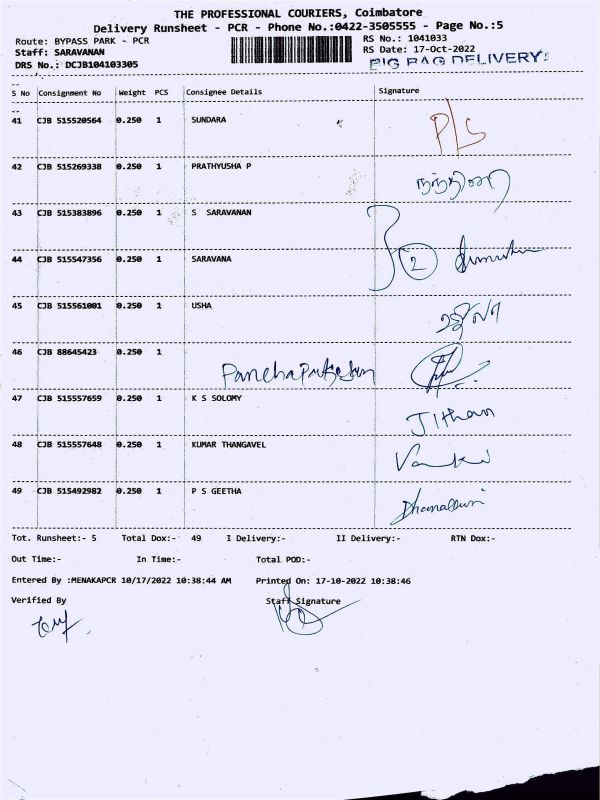 THE PROFESSIONAL COURIERS, Coimbatore
Delivery Runsheet - PCR - Phone No.:0422-3505555 - Page No.:5
Route: BYPASS PARK - PCR RS No.: 1041033
Staff: SARAVANAN RS Date: 17-Oct-2022
DRS No.: DCJB104103305 BIG BAG DELIVERY:
S No Consignment No Weight PCS Consignee Details Signature
41 CJB 515520564 0.250 1 SUNDARA P/S
42 CJB 515269338 0.250 1 PRATHYUSHA P
43 CJB 515383896 0.250 1 S SARAVANAN
44 CJB 515547356 0.250 1 SARAVANA 2
45 CJB 515561001 0.250 1 USHA உஷா
46 CJB 88645423 0.250 1
47 CJB 515557659 0.250 1 K S SOLOMY Jithan
48 CJB 515557648 0.250 1 KUMAR THANGAVEL
49 CJB 515492982 0.250 1 P S GEETHA
Tot. Runsheet:- 5 Total Dox:- 49 I Delivery:- II Delivery:- RTN Dox:-
Out Time:- In Time:- Total POD:-
Entered By :MENAKAPCR 10/17/2022 10:38:44 AM Printed On: 17-10-2022 10:38:46
Verified By Staff Signature